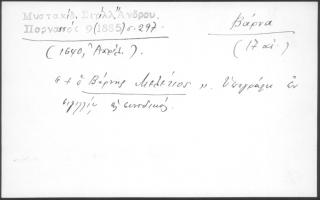 Μυστακίδ. Σιγίλλ Άνδρου.
Παρνασσός 9(1885)σ.297.
(1640, Ἀπρίλ.).
Βάρνα
(17 αἰ.)
"+ ὁ Βάρνης Μελέτιος". Ὑπογράφει ἐν
σιγιλλίῳ συνοδικῷ.